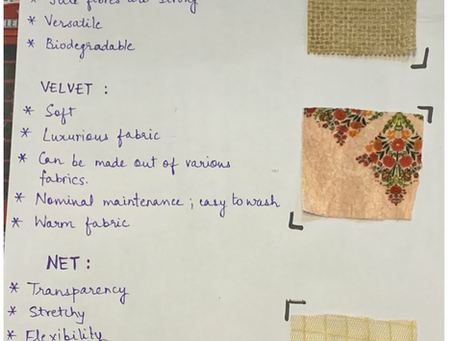 * Jute fibres are strong
* Versatile
* Biodegradable
VELVET :
* Soft
* Luxurious fabric
* Can be made out of various
fabrics.
* Nominal maintenance ; easy to wash
* Warm fabric
NET :
* Transparency
* Stretchy
* Flexibility